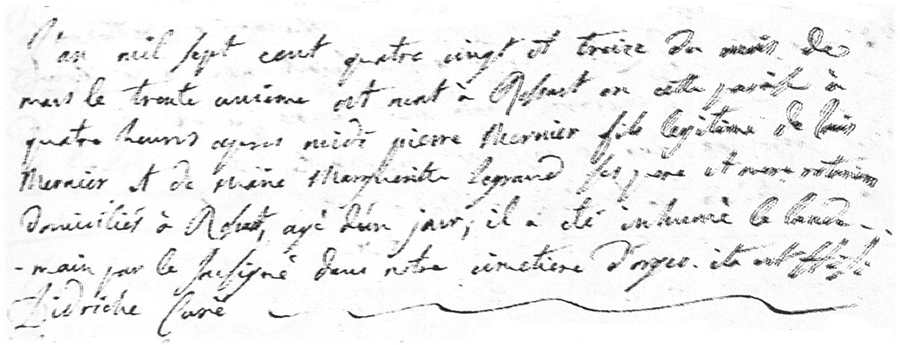 L'an mil sept cent quatre vingt et treize du mois de
mars le trente unieme est mort à en cette paroisse à
quatre heures apres midi pierre Mernier fils legitime de louis
Mernier et de Marie Marguerite legrand ses pere et mere
domiciliés à agé d'un jour, il a été inhumé le lande-
-main par le susigné dans notre cimetiere D'orgeo. ita est
Didriche Curé